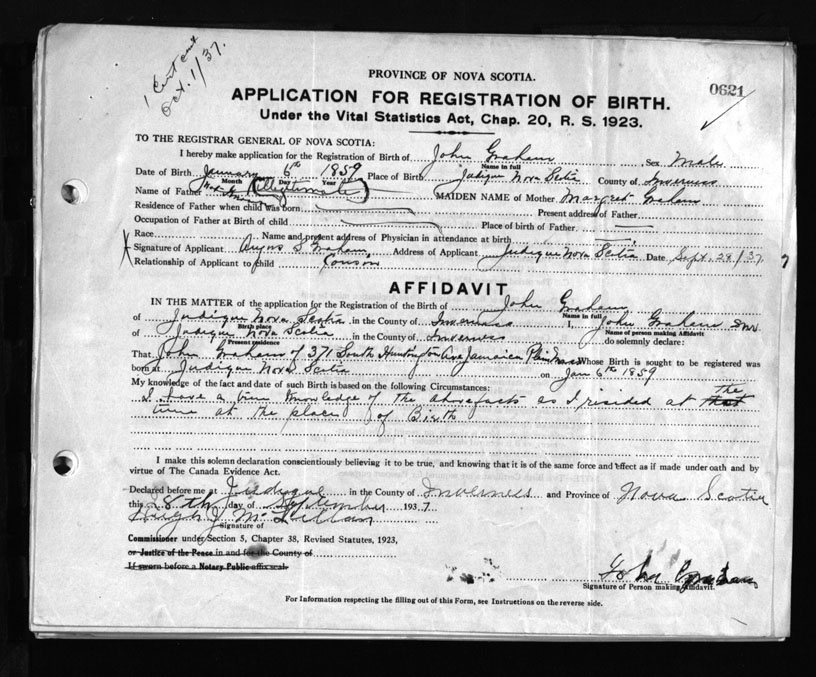 1 Cert out
Oct. 1/37.
PROVINCE OF NOVA SCOTIA.
0621
APPLICATION FOR REGISTRATION OF BIRTH.
Under the Vital Statistics Act, Chap. 20, R. S. 1923.
TO THE REGISTRAR GENERAL OF NOVA SCOTIA:
I hereby make application for the Registration of Birth of John Graham Sex Male
Name in full
Date of Birth January 6th 1859 Place of Birth Judique Nova Scotia County of Inverness
Month Day Year
Name of Father (Illegitimate) MAIDEN NAME of Mother Margret Graham
Residence of Father when child was born Present address of Father
Occupation of Father at Birth of child Place of Birth of Father
Race Name and present address of Physician in attendance at birth
X Signature of Applicant Angus S Graham, Address of Applicant Judique Nova Scotia Date Sept. 28/37
Relationship of Applicant to child Couson
AFFIDAVIT
IN THE MATTER of the application for the Registration of the Birth of John Graham
Name in full
of Judique Nova Scotia in the County of Inverness I, John Graham
Birth place Name of person making Affidavit
of Judique Nova Scotia in the County of Inverness do solemnly declare:
Present residence
That John Graham of 371 South Huntington Ave Jamaica Plain Mass Whose Birth is sought to be registered was
born at Judique Nova Scotia on Jan 6th 1859
My knowledge of the fact and date of such Birth is based on the following Circumstances:
I have a knowledge of the above facts as I resided at the
time at the place of Birth
I make this solemn declaration conscientiously believing it to be true, and knowing that it is of the same force and effect as if made under oath and by
virtue of The Canada Evidence Act.
Declared before me at Judique in the County of Inverness and Province of Nova Scotia
this 28th day of September 1937
Hugh J McLellan
Signature of
Commissioner under Section 5, Chapter 38, Revised Statutes, 1923,
or Justice of the Peace in and for the County of
If sworn before a Notary Public affix seal.
John Graham
Signature of Person making Affidavit.
For Information respecting the filling out of this Form, see Instructions on the reverse side.